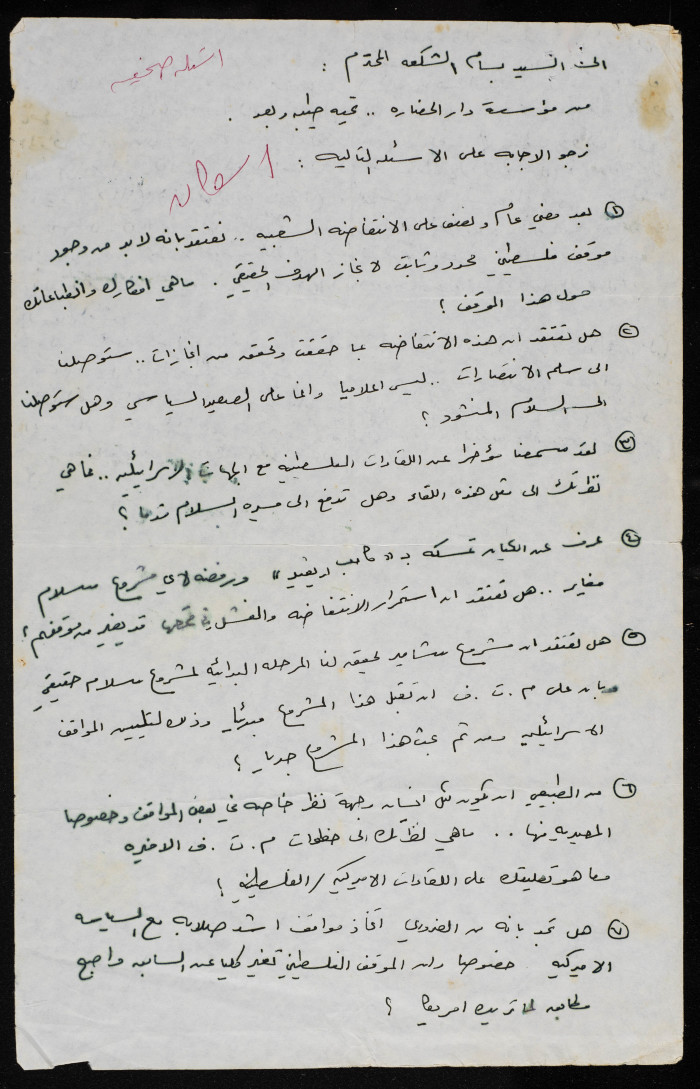 اسئله صحفيه
الاخ السيد بسام الشكعه المحترم :
من مؤسسة دار الحضاره .. تحيه طيبه وبعد .
نرجو الاجابه على الاسئله التاليه :
① بعد مضي عام ونصف على الانتفاضه الشعبيه .. نعتقد بانه لابد من وجود
موقف فلسطيني محدد وثابت لانجاز الهدف الحقيقي . ماهي افكارك وانطباعاتك
حول هذا الموقف ؟
② هل تعتقد ان هذه الانتفاضه بما حققت وتحققه من انجازات .. ستوصلنا
الى سلم الانتصارات .. ليس اعلاميا وانما على الصعيد السياسي وهل ستوصلنا
الى السلام المنشود ؟
③ لقد سمعنا مؤخرا عن اللقاءات الفلسطينيه مع الجهات الاسرائيليه .. فما هي
نظرتك الى مثل هذه اللقاء وهل تدفع الى مسيره السلام قدما ؟
④ عرف عن الكيان تمسكه بـ " كامب ديفيد " ورفضه لاي مشروع سلام
مغاير .. هل تعتقد ان استمرار الانتفاضه والفشل في قمعها قد يغير من موقفهم ؟
⑤ هل تعتقد ان مشروع شامير يحقق لنا المرحله البدائيه لمشروع سلام حقيقي
بان على م . ت . ف ان تقبل هذا المشروع مبدئيا وذلك لتليين المواقف
الاسرائيليه ومن ثم بحث هذا المشروع جديا ؟
⑥ من الطبيعي ان يكون لكل انسان وجهة نظر خاصه في بعض المواقف وخصوصا
المصيريه منها .. ماهي نظرتك الى خطوات م . ت . ف الاخيره
وما هو تعليقك على اللقاءات الامريكيه / الفلسطينيه ؟
⑦ هل تجد بانه من الضروري اتخاذ مواقف اشد صلابه مع السياسه
الامريكيه خصوصا وان الموقف الفلسطيني تغير كليا عن السابق واصبح
مطابق لما تريده امريكا ؟